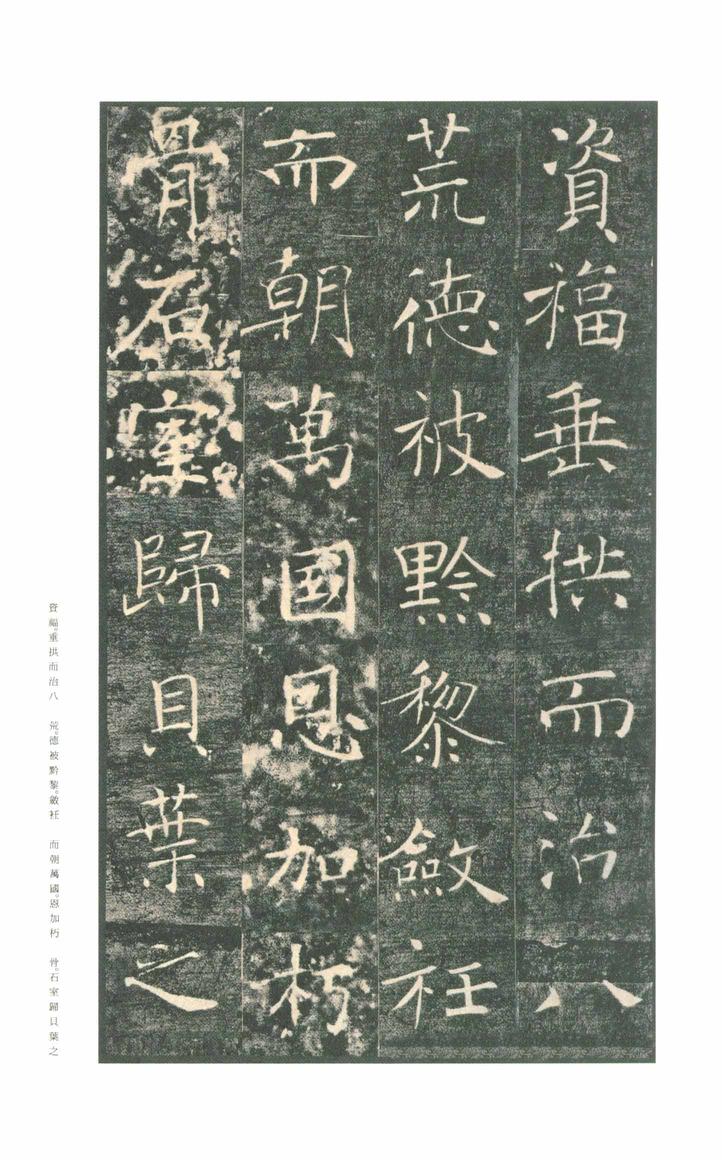 資福垂拱而治八
荒德被黔黎斂衽
而朝萬國恩加朽
骨石室歸貝葉之
資福。垂拱而治八 荒。德被黔黎。斂衽 而朝萬國。恩加朽 骨。石室歸貝葉之